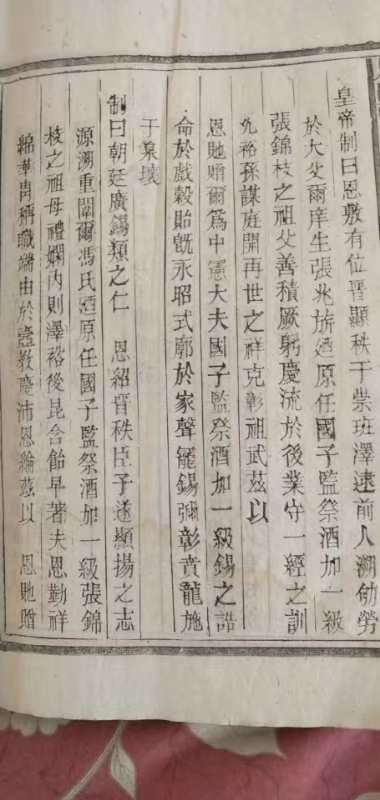 皇帝制曰恩敷有位晋顯秩于崇班澤遠前人溯劬勞
於大父爾庠生張兆旂廼原任國子監祭酒加一級
張錦枝之祖父善積厥躬慶流於後業守一經之訓
允裕孫謀庭開再世之祥克彰祖武茲以
恩貤贈爾爲中憲大夫國子監祭酒加一級錫之誥
命於戲穀貽旣永昭式廓於家聲寵錫彌彰賁龍施
于泉壤
制曰朝廷廣錫類之仁 恩紹晋秩臣子遂顯揚之志
源溯重闈爾馮氏廼原任國子監祭酒加一級張錦
枝之祖母禮嫻內則澤裕後昆含飴早著夫恩勤祥
綿華冑稱職端由於壼教慶沛恩綸茲以 恩貤贈